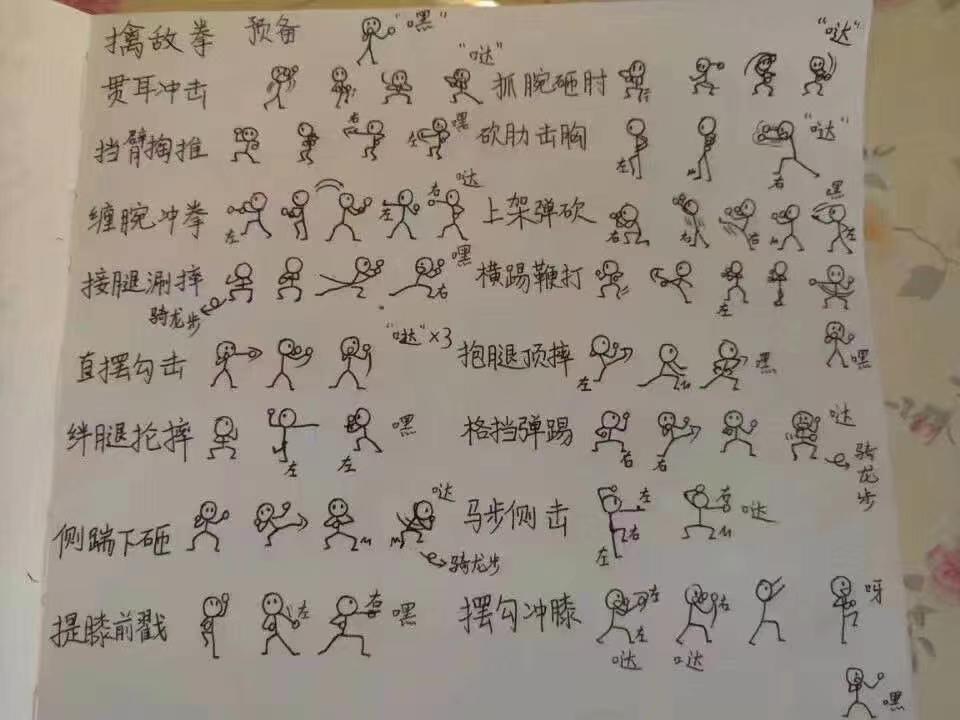 擒敌拳 预备 "嘿"
贯耳冲击 "哒" 抓腕砸肘 "哒"
挡臂掏推 右 左 嘿 砍肋击胸 左 右 "哒"
缠腕冲拳 左 左 右 哒 上架弹砍 右 右 右 左 嘿
接腿涮摔 骑龙步 右 嘿 横踢鞭打 左
嘿
直摆勾击 "哒"×3 抱腿顶摔 左 嘿
绊腿抡摔 左 左 嘿 格挡弹踢 右 右 哒 骑龙步
侧踹下砸 哒 骑龙步 马步侧击 左 右 左 右 哒
提膝前戳 左 右 嘿 摆勾冲膝 左 左 哒 右 哒 呀
嘿